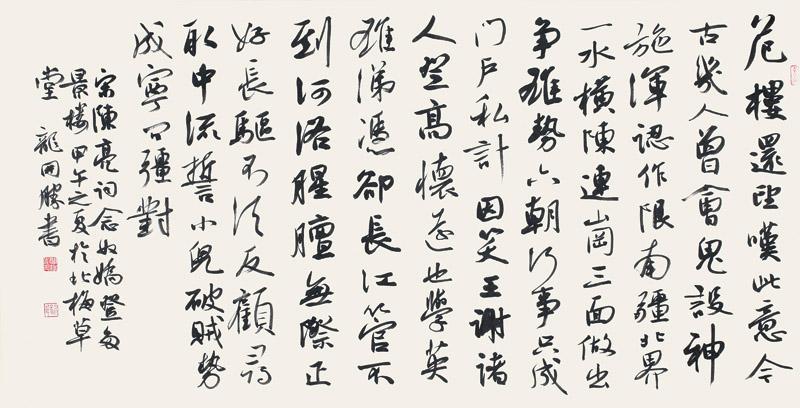 危樓還望嘆此意今
古幾人曾會鬼設神
施渾認作限南疆北界
一水橫陳連崗三面做出
爭雄勢六朝何事只成
門户私計因笑王謝諸
人登高懷遠也學英
雄涕憑卻長江管不
到河洛腥膻無際正
好長驅不須反顧尋
取中流誓小兒破賊勢
成寧問疆對
宋陳亮詞念奴嬌登多
景楼甲午之夏於北梅草
堂龍開勝書